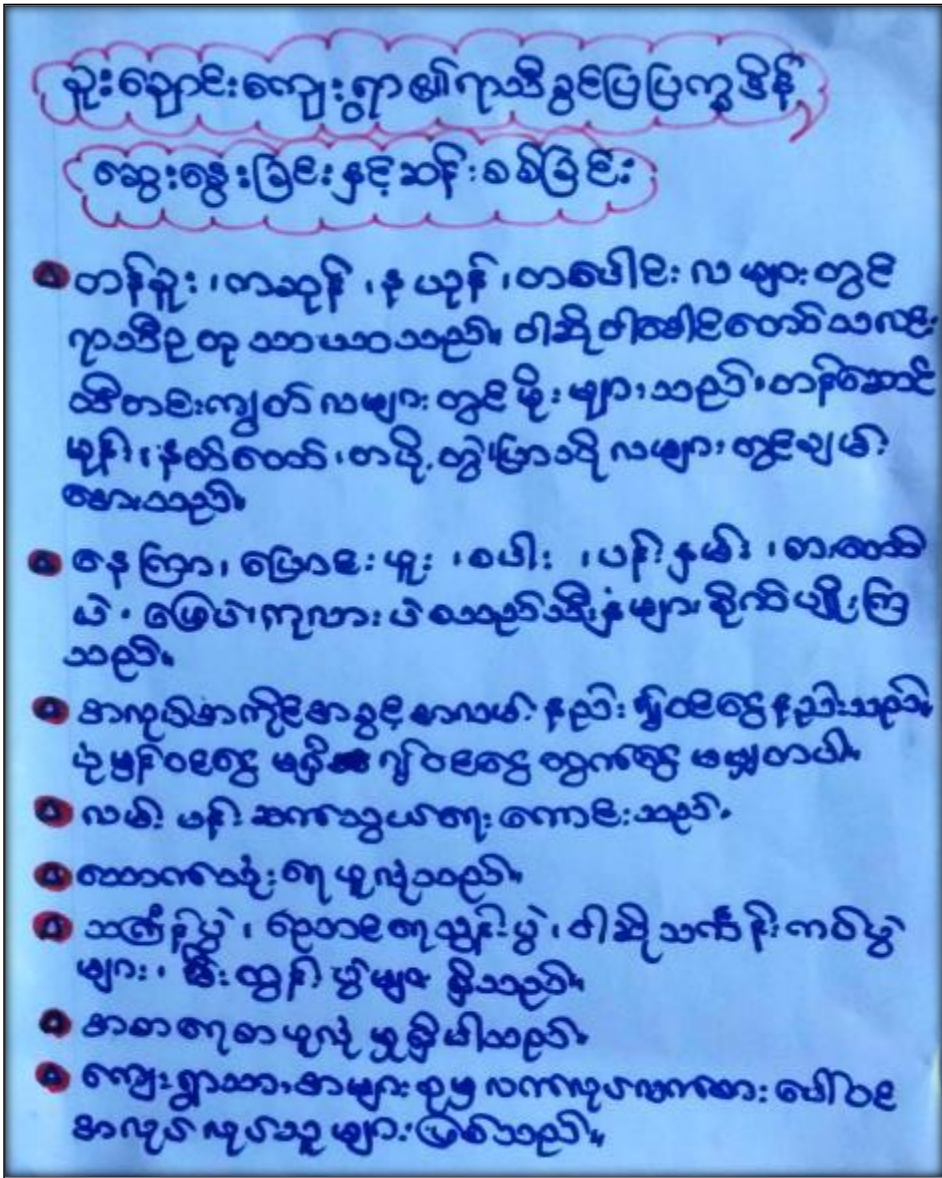 ညှုးချောင်းကျေးရွာ၏ရာသီခွင်ပြပြက္ခဒိန်
ဆွေးနွေးခြင်းနှင့်ဆန်းစစ်ခြင်း
တန်ခူး၊ကဆုန်၊နယုန်၊တပေါင်းလများတွင်
ရာသီဥတုသာယာသည်။ ဝါဆိုဝါခေါင်တော်သလင်း
သီတင်းကျွတ်လများတွင်မိုးများသည်၊တန်ဆောင်
မုန်း၊နတ်တော်၊တပို့တွဲ၊ပြာသိုလများတွင်ချမ်း
အေးသည်။
နေကြာ၊ပြောင်းဖူး၊စပါး၊ပန်းနှမ်း၊စားတော်
ပဲ၊မြေပဲ၊ကုလားပဲစသည့်သီးနှံများစိုက်ပျိုးကြ
သည်။
အလုပ်အကိုင်အခွင့်အလမ်းနည်း၍ဝင်ငွေနည်းသည်။
ပုံမှန်ဝင်ငွေမရှိ၍ဝင်ငွေထွက်ငွေမမျှတပါ။
လမ်းပန်းဆက်သွယ်ရေးကောင်းသည်။
သောက်သုံးရေဖူလုံသည်။
သင်္ကြန်ပွဲ၊ညောင်ရေသွန်းပွဲ၊ဝါဆိုသင်္ကန်းကပ်ပွဲ
များ၊မီးထွန်းပွဲများရှိသည်။
အစာရေစာဖူလုံမှုရှိပါသည်။
ကျေးရွာသားအများစုမှလက်လုပ်လက်စားပေါ်ဝင်
အလုပ်လုပ်သူများဖြစ်သည်။